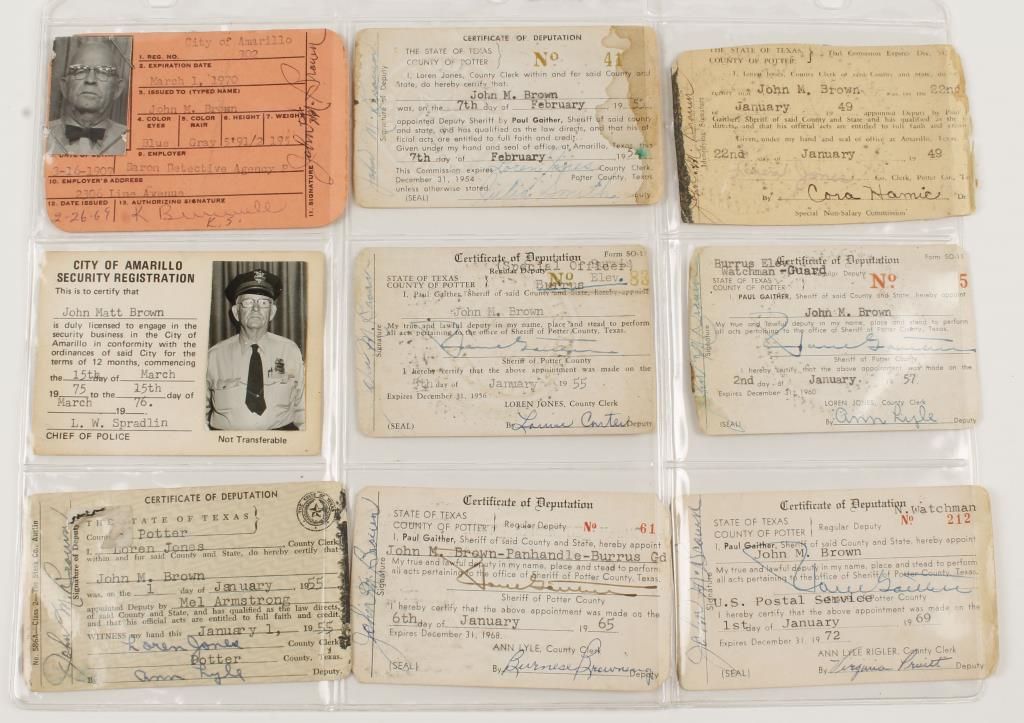 City of Amarillo
1. REG. NO. 302
2. EXPIRATION DATE
March 1, 1970
3. ISSUED TO (TYPED NAME)
John M. Brown
4. COLOR EYES 5. COLOR HAIR 6. HEIGHT 7. WEIGHT
Blue Gray
9. EMPLOYER
Baron Detective Agency
10. EMPLOYER'S ADDRESS
2306 Line Avenue
12. DATE ISSUED 13. AUTHORIZING SIGNATURE
2-26-69
11. SIGNATURE
John M. Brown
CERTIFICATE OF DEPUTATION
THE STATE OF TEXAS
COUNTY OF POTTER
No 41
I, Loren Jones, County Clerk within and for said County and
State, do hereby certify that
John M. Brown
was, on the 7th day of February 19
appointed Deputy Sheriff by Paul Gaither, Sheriff of said county
and state, and has qualified as the law directs, and that his of-
ficial acts are entitled to full faith and credit.
Given under my hand and seal of office, at Amarillo, Texas, this
7th day of February 19
This Commission expires
December 31, 1954
unless otherwise stated.
County Clerk
Potter County, Texas
(SEAL) Deputy
Signature of Deputy
THE STATE OF TEXAS
COUNTY OF POTTER
This Commission Expires Dec. 31,
John M. Brown was, on the 22nd
January 49 appointed Deputy
Gaither, Sheriff of said County and State and has qualified as the law
directs, and that his official acts are entitled to full faith and
Given, under my hand and seal of office at Amarillo, Texas
22nd day of January 49
Clerk, Potter County,
By Cora Hamic
Special Non-Salary Commission
CITY OF AMARILLO
SECURITY REGISTRATION
This is to certify that
John Matt Brown
is duly licensed to engage in the
security business in the City of
Amarillo in conformity with the
ordinances of said City for the
terms of 12 months, commencing
the 15th day of March
1975 to the 15th day of
March 1976.
L. W. Spradlin
CHIEF OF POLICE
Not Transferable
Certificate of Deputation Form SO-11
(Special Officer)
Regular Deputy
STATE OF TEXAS
COUNTY OF POTTER
Burrus Elev.
No 83
I, Paul Gaither, Sheriff of said County and State, hereby appoint
John M. Brown
My true and lawful deputy in my name, place and stead to perform
all acts pertaining to the office of Sheriff of Potter County, Texas.
Sheriff of Potter County
I hereby certify that the above appointment was made on the
day of January 1955
Expires December 31, 1956
LOREN JONES, County Clerk
(SEAL) By Louise Carter Deputy
Signature
Certificate of Deputation Form SO-11
Burrus Elev.
Watchman-Guard
Regular Deputy
STATE OF TEXAS
COUNTY OF POTTER
No 5
I, PAUL GAITHER, Sheriff of said County and State, hereby appoint
John M. Brown
My true and lawful deputy in my name, place and stead to perform
all acts pertaining to the office of Sheriff of Potter County, Texas.
Sheriff of Potter County
I hereby certify that the above appointment was made on the
2nd day of January 1957.
Expires December 31, 1960
LOREN JONES, County Clerk
(SEAL) By Ann Lyle Deputy
Signature
CERTIFICATE OF DEPUTATION
THE STATE OF TEXAS
County of Potter
I, Loren Jones County Clerk
within and for said County and State, do hereby certify that
John M. Brown
was on the 1 day of January, 1955
appointed Deputy by Mel Armstrong
of said County and State, and has qualified as the law directs,
and that his official acts are entitled to full faith and credit.
WITNESS my hand this January 1, 1955
Loren Jones County Clerk
Potter County, Texas.
By Ann Lyle Deputy.
Signature of Deputy
John M Brown
Certificate of Deputation
STATE OF TEXAS
COUNTY OF POTTER
Regular Deputy No 61
I, Paul Gaither, Sheriff of said County and State, hereby appoint
John M. Brown-Panhandle-Burrus Gd
My true and lawful deputy in my name, place and stead to perform
all acts pertaining to the office of Sheriff of Potter County, Texas.
Sheriff of Potter County
I hereby certify that the above appointment was made on the
6th day of January 1965
Expires December 31, 1968.
ANN LYLE, County Clerk
(SEAL) By Burnese Browning Deputy
Signature
John M Brown
Certificate of Deputation
N. Watchman
STATE OF TEXAS
COUNTY OF POTTER
Regular Deputy No 212
I, Paul Gaither, Sheriff of said County and State, hereby appoint
John M. Brown
My true and lawful deputy in my name, place and stead to perform
all acts pertaining to the office of Sheriff of Potter County, Texas.
U.S. Postal Service
Sheriff of Potter County
I hereby certify that the above appointment was made on the
1st day of January 1969
Expires December 31, 1972
ANN LYLE RIGLER, County Clerk
(SEAL) By Virginia Pruitt Deputy
Signature